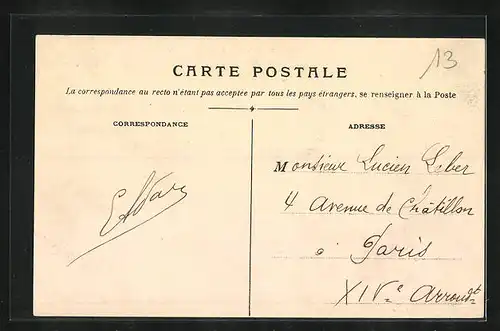 13
CARTE POSTALE
La correspondance au recto n'étant pas acceptée par tous les pays étrangers, se renseigner à la Poste
CORRESPONDANCE
ADRESSE
Monsieur Lucien
4 Avenue de Châtillon
à Paris
XIVe Arrondt